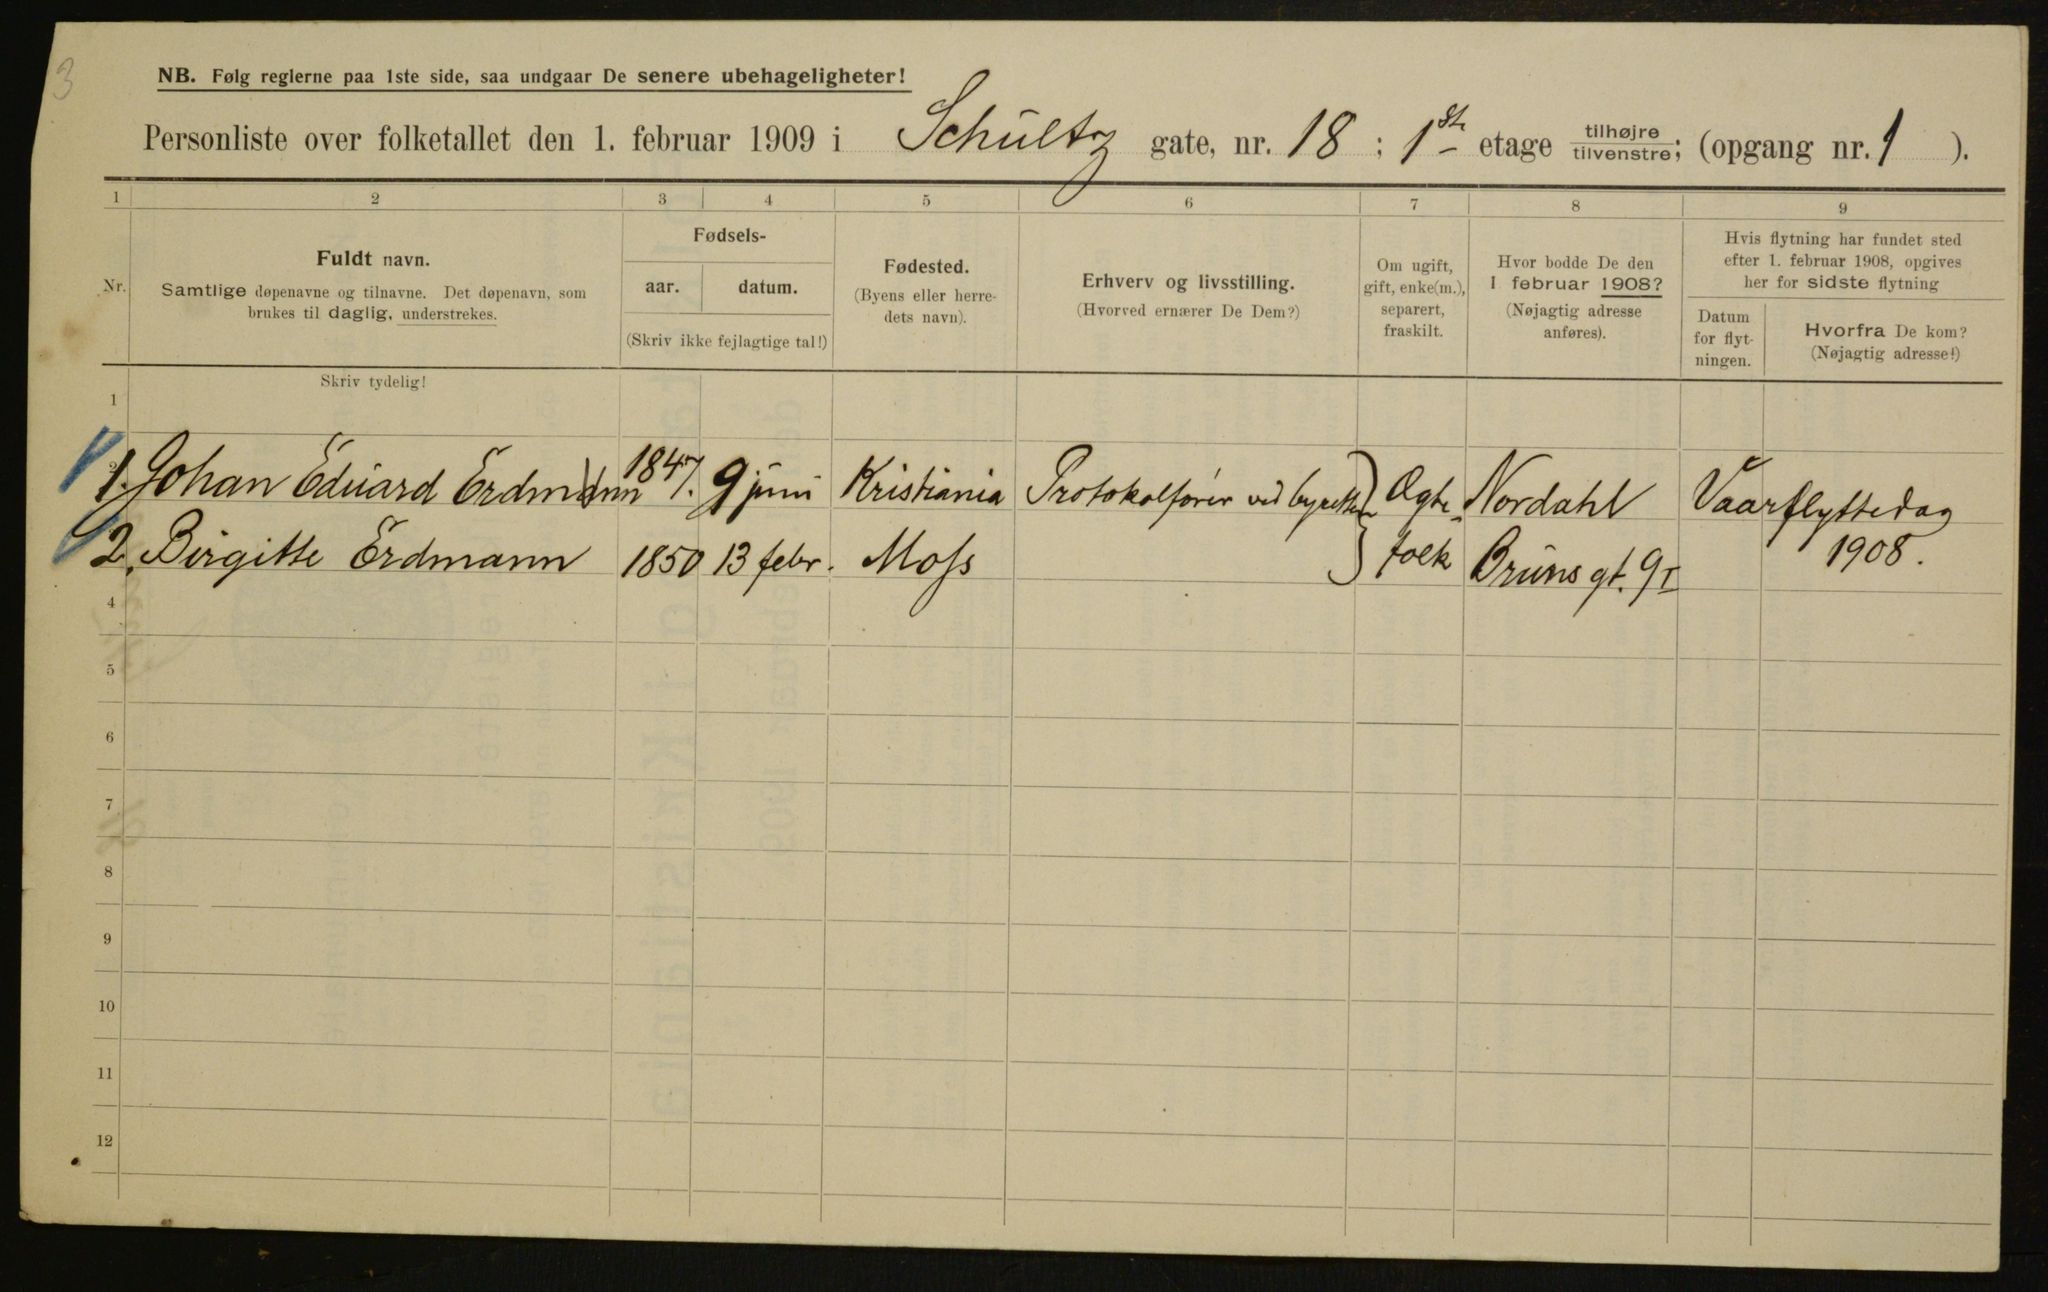 3
NB. Følg reglerne paa 1ste side, saa undgaar De senere ubehageligheter!
Personliste over folketallet den 1. februar 1909 i Schultz gate, nr. 18 ; 1ste etage tilhøjre/tilvenstre; (opgang nr. 1 ).
1 2 3 4 5 6 7 8 9
Nr.
Fuldt navn.
Samtlige døpenavne og tilnavne. Det døpenavn, som
brukes til daglig, understrekes.
Fødsels-
aar. datum.
(Skriv ikke fejlagtige tal!)
Fødested.
(Byens eller herre-
dets navn).
Erhverv og livsstilling.
(Hvorved ernærer De Dem?)
Om ugift,
gift, enke(m.),
separert,
fraskilt.
Hvor bodde De den
1 februar 1908?
(Nøjagtig adresse
anføres).
Hvis flytning har fundet sted
efter 1. februar 1908, opgives
her for sidste flytning
Datum
for flyt-
ningen.
Hvorfra De kom?
(Nøjagtig adresse!)
Skriv tydelig!
1
1. Johan Eduard Erdmann 1847. 9 juni Kristiania Protokolfører ved byretten Ægte- Nordahl Vaarflyttedag
2. Birgitte Erdmann 1850 13 febr. Moss folk Bruns gt. 9 I 1908.
4
5
6
7
8
9
10
11
12